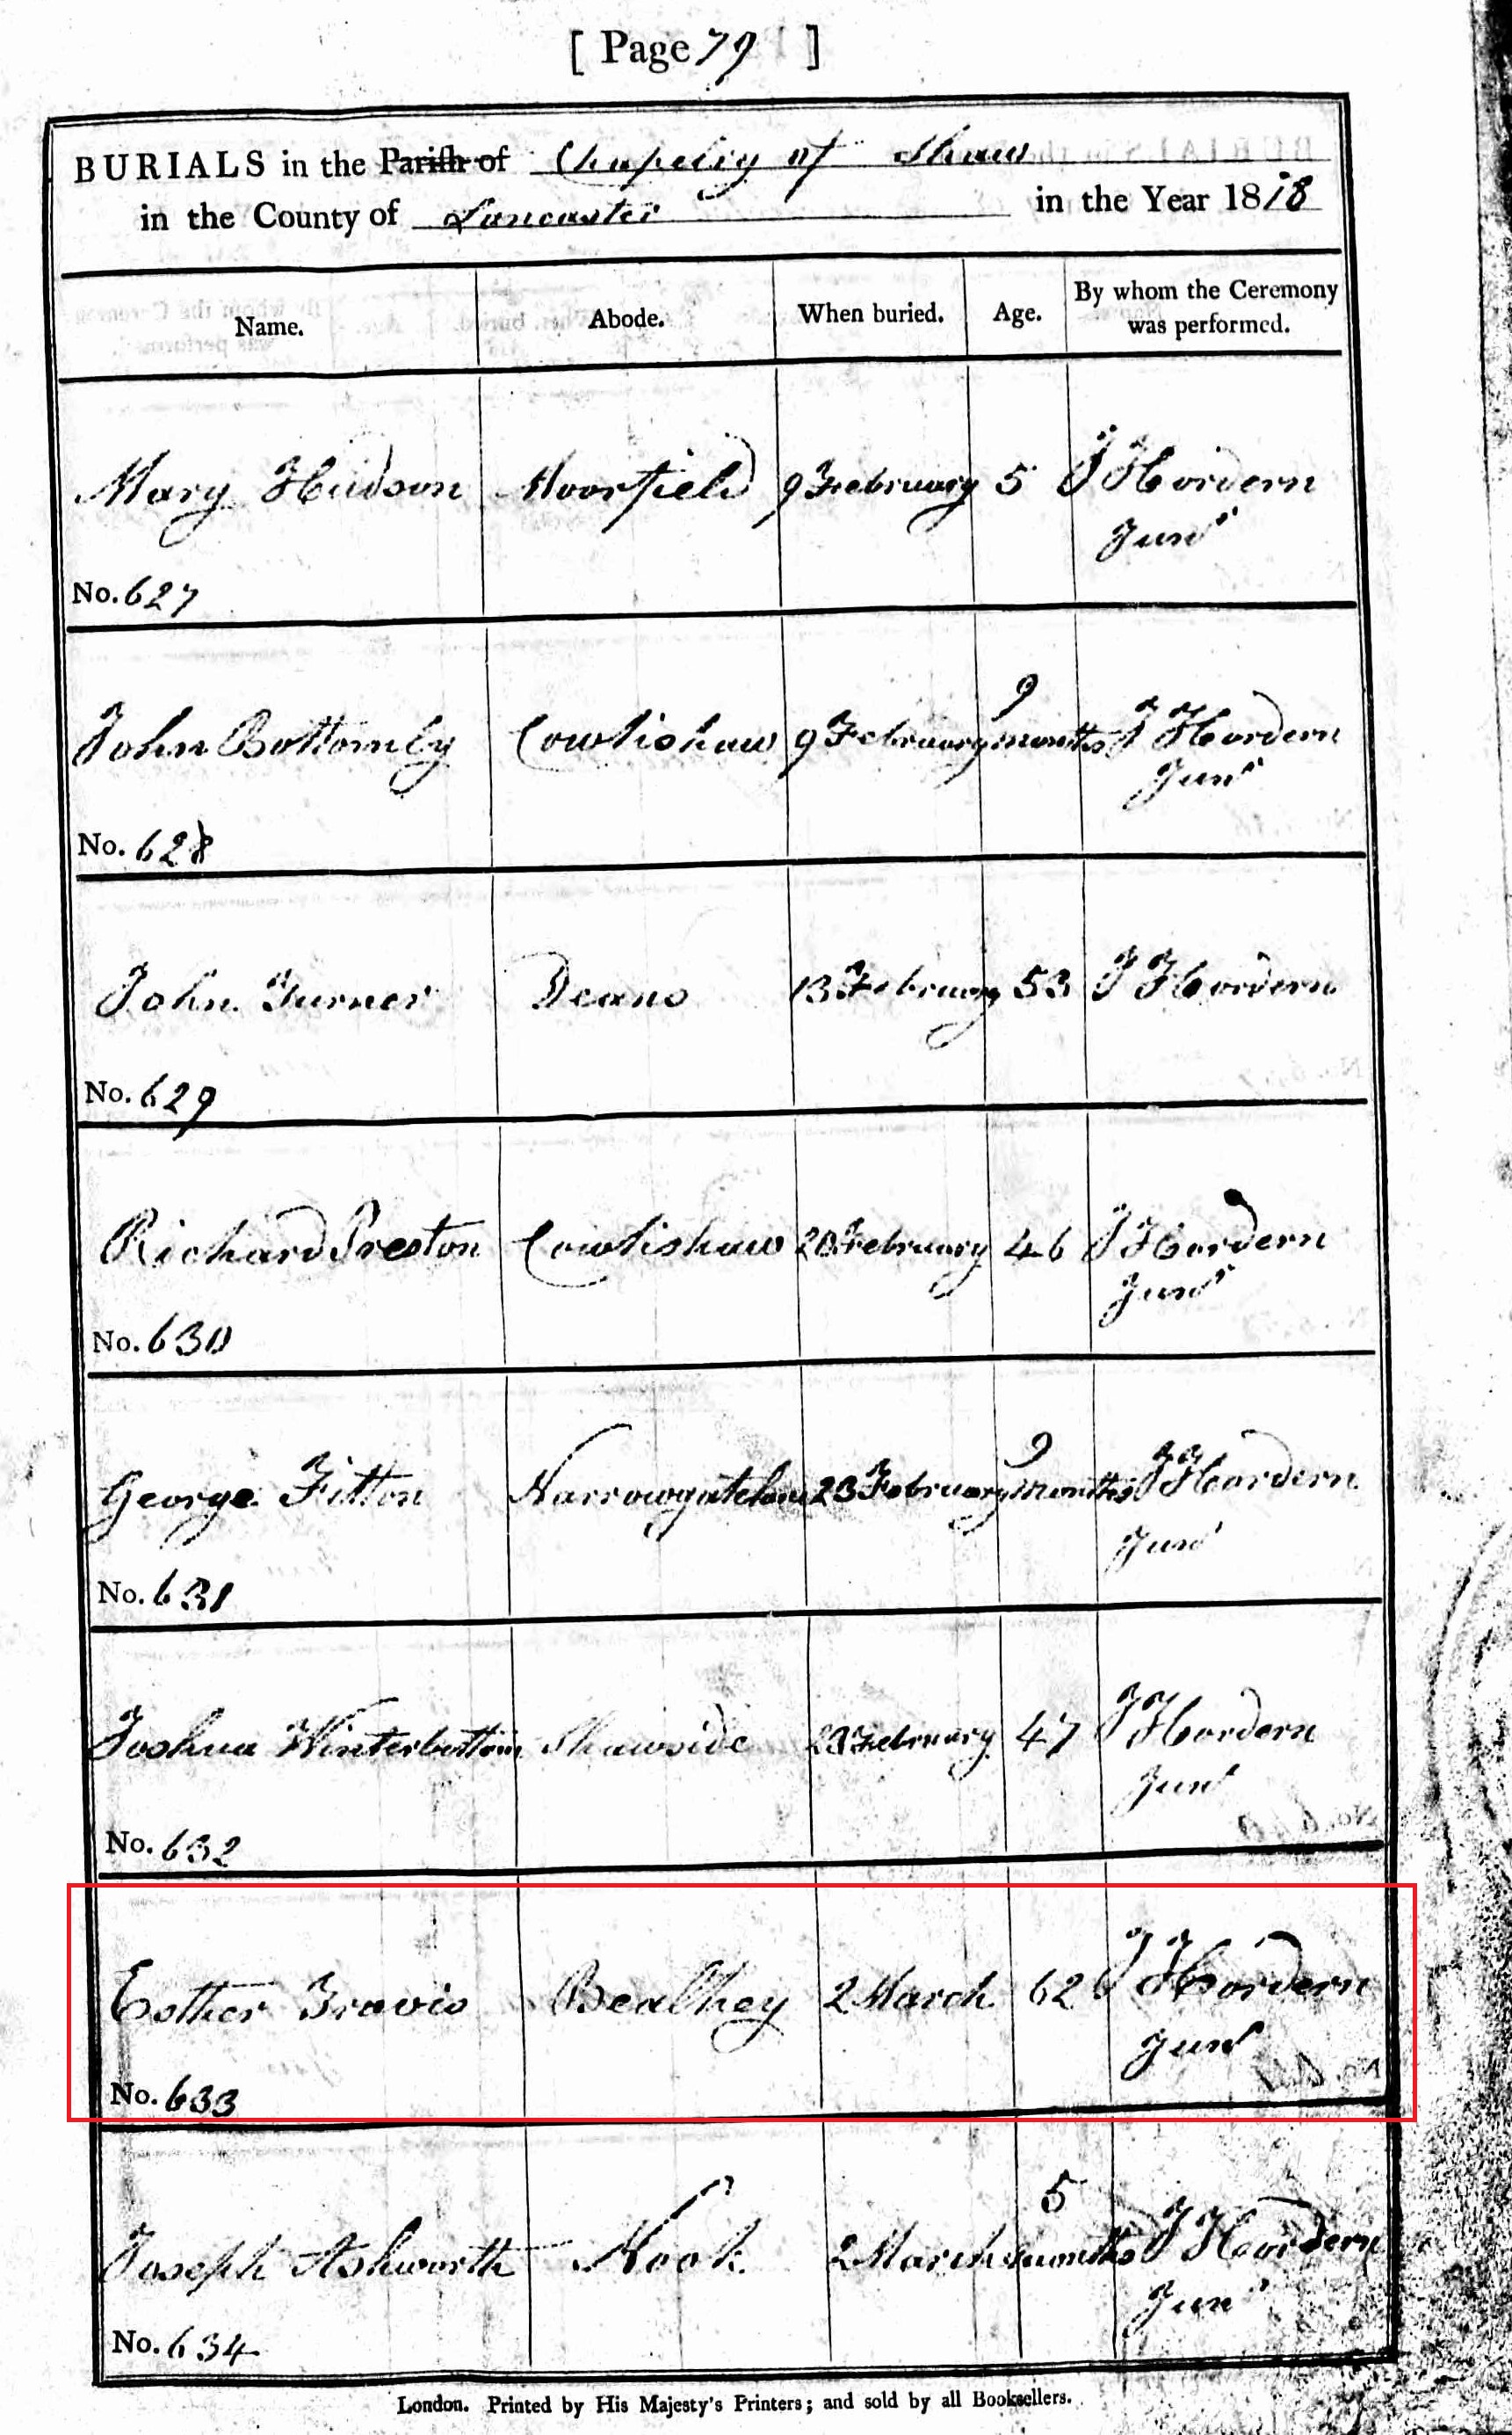 [ Page 79 ]
BURIALS in the Parish of Chapelry of Shaw
in the County of Lancaster in the Year 1818
Name. Abode. When buried. Age. By whom the Ceremony was performed.
Mary Hudson Moorfield 9 February 5 J Hordern Junr
No. 627
John Bottomley Cowlishaw 9 February 9 months J Hordern Junr
No. 628
John Turner Deans 13 February 53 J Hordern
No. 629
Richard Preston Cowlishaw 20 February 46 J Hordern Junr
No. 630
George Fitton Narrowgatelane 23 February 9 months J Hordern Junr
No. 631
Joshua Winterbottom Shawside February 47 J Hordern Junr
No. 632
Esther Travis Bealhey 2 March 62 J Hordern Junr
No. 633
Joseph Ashworth Nook 2 March 5 months J Hordern Junr
No. 634
London. Printed by His Majesty's Printers; and sold by all Booksellers.